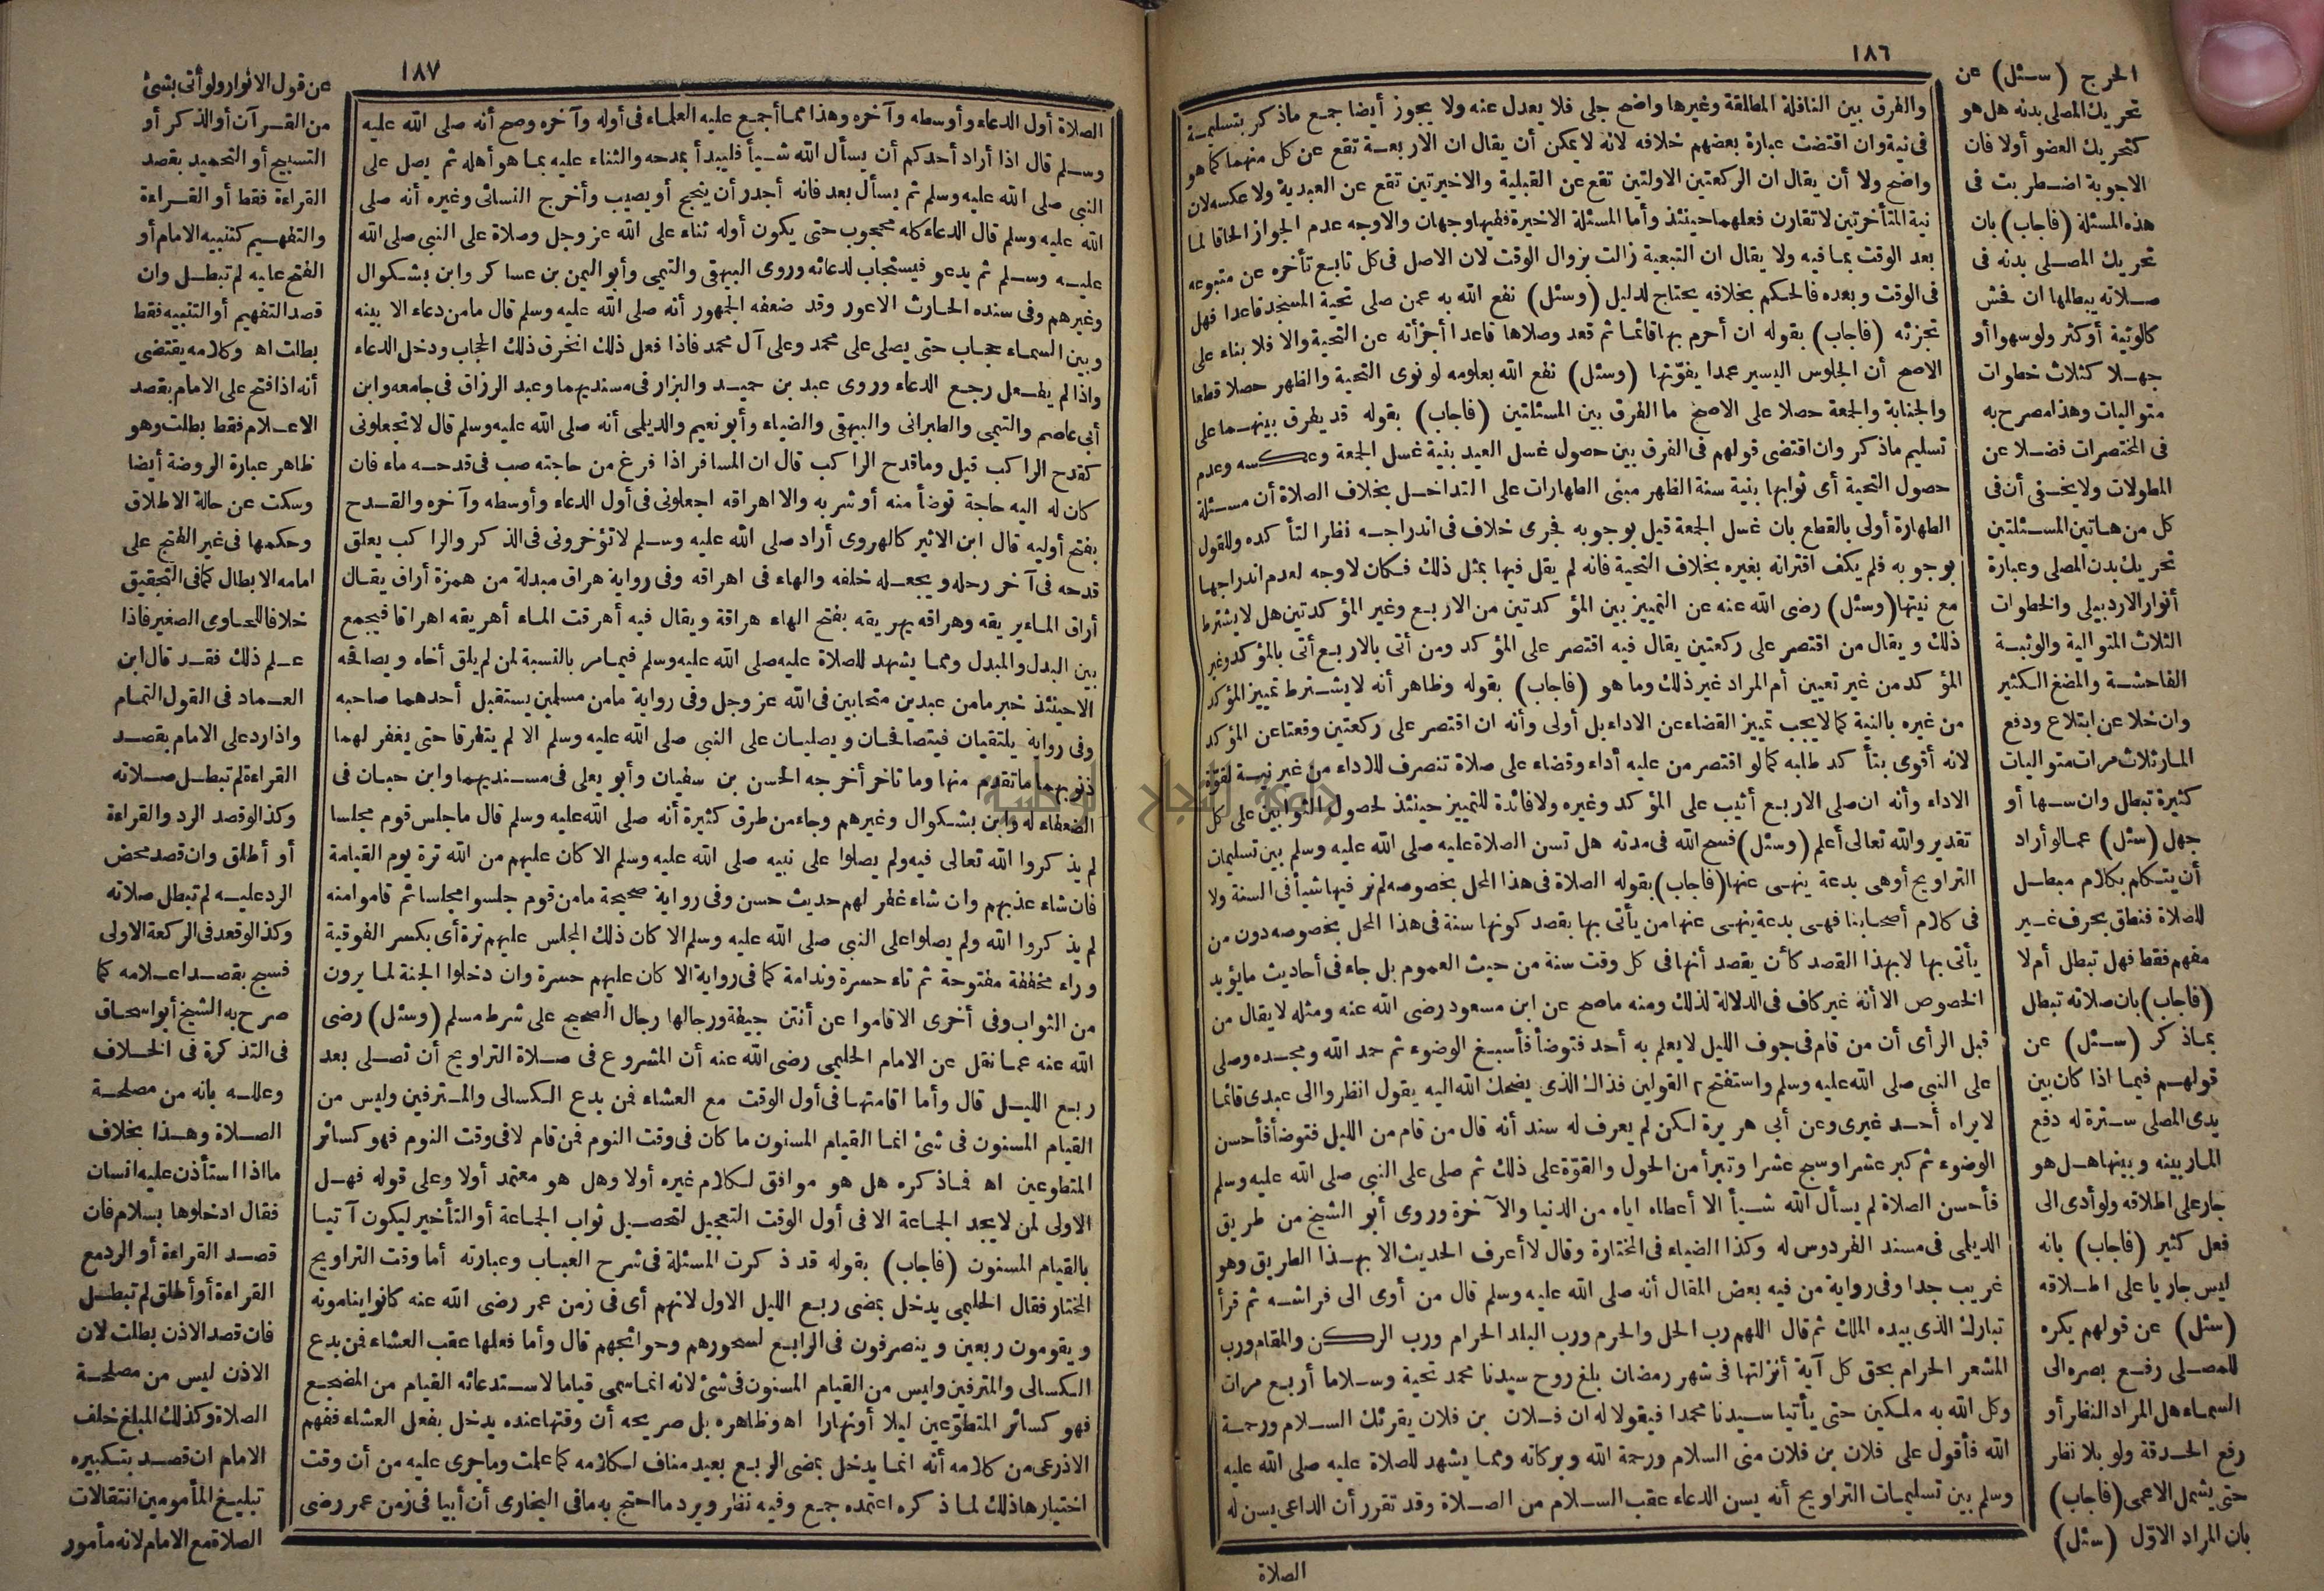 ١٨٦
والفرق بين النافلة المطلقة وغيرها واضح جلي فلا يعدل عنه ولا يجوز أيضا جمع ماذكر بتسليمة
فى نية وان اقتضت عبارة بعضهم خلافه لانه لا يمكن أن يقال ان الاربعة تقع عن كل منهما كما هو
واضح ولا أن يقال ان الركعتين الاولتين تقع عن القبلية والاخيرتين تقع عن البعدية ولا عكسه لان
نية المتأخرتين لا تقارن فعلهما حينئذ وأما المسئلة الاخيرة ففيها وجهان والاوجه عدم الجواز الحاقا لما
بعد الوقت بما فيه ولا يقال ان التبعية زالت بزوال الوقت لان الاصل فى كل تابع تأخره عن متبوعه
فى الوقت وبعده فالحكم بخلافه يحتاج لدليل (وسئل) نفع الله به عمن صلى تحية المسجد قاعدا فهل
تجزئه (فاجاب) بقوله ان أحرم بها قائما ثم قعد وصلاها قاعدا أجزأته عن التحية والا فلا بناء على
الاصح أن الجلوس اليسير عمدا يفوّتها (وسئل) نفع الله بعلومه لو نوى التحية والظهر حصلا قطعا
والجنابة والجمعة حصلا على الاصح ما الفرق بين المسئلتين (فاجاب) بقوله قد يفرق بينهما على
تسليم ماذكر وان اقتضى قولهم فى الفرق بين حصول غسل العيد بنية غسل الجمعة وعكسه وعدم
حصول التحية أى ثوابها بنية سنة الظهر مبنى الطهارات على التداخل بخلاف الصلاة أن مسئلة
الطهارة أولى بالقطع بان غسل الجمعة قيل بوجوبه فجرى خلاف فى اندراجه نظرا لتأكده وللقول
بوجوبه فلم يكف اقترانه بغيره بخلاف التحية فانه لم يقل فيها بمثل ذلك فكان لا وجه لعدم اندراجها
مع نيتها (وسئل) رضى الله عنه عن التمييز بين المؤكدتين من الاربع وغير المؤكدتين هل لا يشترط
ذلك ويقال من اقتصر على ركعتين يقال فيه اقتصر على المؤكد ومن أتى بالاربع أتى بالمؤكد وغير
المؤكد من غير تعيين أم المراد غير ذلك وما هو (فاجاب) بقوله وظاهر أنه لا يشترط تمييز المؤكد
من غيره بالنية كما لا يجب تمييز القضاء عن الاداء بل أولى وأنه ان اقتصر على ركعتين وقعتا عن المؤكد
لانه أقوى بتأكد طلبه كما لو اقتصر من عليه أداء وقضاء على صلاة تنصرف للاداء من غير نية لقوّة
الاداء وأنه ان صلى الاربع أثيب على المؤكد وغيره ولا فائدة للتمييز حينئذ لحصول الثوابين على كل
تقدير والله تعالى أعلم (وسئل) فسح الله فى مدته هل تسن الصلاة عليه صلى الله عليه وسلم بين تسليمات
التراويح أوهى بدعة ينهى عنها (فاجاب) بقوله الصلاة فى هذا المحل بخصوصه لم نر فيها شيأ فى السنة ولا
فى كلام أصحابنا فهى بدعة ينهى عنها من يأتى بها بقصد كونها سنة فى هذا المحل بخصوصه دون من
يأتى بها لا بهذا القصد كأن يقصد أنها فى كل وقت سنة من حيث العموم بل جاء فى أحاديث ما يؤيد
الخصوص الا أنه غير كاف فى الدلالة لذلك ومنه ما صح عن ابن مسعود رضى الله عنه ومثله لا يقال من
قبل الرأى أن من قام فى جوف الليل لا يعلم به أحد فتوضأ فأسبغ الوضوء ثم حمد الله ومجده وصلى
على النبى صلى الله عليه وسلم واستفتح القولين فذاك الذى يضحك الله اليه يقول انظروا الى عبدى قائما
لا يراه أحد غيرى وعن أبى هريرة لكن لم يعرف له سند أنه قال من قام من الليل فتوضأ فأحسن
الوضوء ثم كبر عشرا وسبح عشرا وتبرأ من الحول والقوّة على ذلك ثم صلى على النبى صلى الله عليه وسلم
فأحسن الصلاة لم يسأل الله شيأ الا أعطاه اياه من الدنيا والآخرة وروى أبو الشيخ من طريق
الديلمى فى مسند الفردوس له وكذا الضياء فى المختارة وقال لا أعرف الحديث الا بهذا الطريق وهو
غريب جدا وفى رواية من فيه بعض المقال أنه صلى الله عليه وسلم قال من أوى الى فراشه ثم قرأ
تبارك الذى بيده الملك ثم قال اللهم رب الحل والحرم ورب البلد الحرام ورب الركن والمقام ورب
المشعر الحرام بحق كل آية أنزلتها فى شهر رمضان بلغ روح سيدنا محمد تحية وسلاما أربع مرات
وكل الله به ملكين حتى يأتيا سيدنا محمدا فيقولا له ان فلان بن فلان يقرئك السلام ورحمة
الله فأقول على فلان بن فلان منى السلام ورحمة الله وبركاته ومما يشهد للصلاة عليه صلى الله عليه
وسلم بين تسليمات التراويح أنه يسن الدعاء عقب السلام من الصلاة وقد تقرر أن الداعى يسن له
الصلاة
الحرج (سئل) عن
تحريك المصلى بدنه هل هو
كتحريك العضو أولا فان
الاجوبة اضطربت فى
هذه المسئلة (فاجاب) بان
تحريك المصلى بدنه فى
صلاته يبطلها ان فحش
كالوثبة أو كثر ولو سهوا أو
جهلا كثلاث خطوات
متواليات وهذا مصرح به
فى المختصرات فضلا عن
المطولات ولا يخفى أن فى
كل من هاتين المسئلتين
تحريك بدن المصلى وعبارة
أنوار الاردبيلى والخطوات
الثلاث المتوالية والوثبة
الفاحشة والمضغ الكثير
وان خلا عن ابتلاع ودفع
المار ثلاث مرات متواليات
كثيرة تبطل وان سها أو
جهل (سئل) عما لو أراد
أن يتكلم بكلام مبطل
للصلاة فنطق بحرف غير
مفهم فقط فهل تبطل أم لا
(فاجاب) بان صلاته تبطل
بما ذكر (سئل) عن
قولهم فيما اذا كان بين
يدى المصلى سترة له دفع
المار بينه وبينها هل هو
جار على اطلاقه ولو أدى الى
فعل كثير (فاجاب) بانه
ليس جاريا على اطلاقه
(سئل) عن قولهم يكره
للمصلى رفع بصره الى
السماء هل المراد النظر أو
رفع الحدقة ولو بلا نظر
حتى يشمل الاعمى (فاجاب)
بان المراد الاوّل (سئل)
١٨٧
الصلاة أول الدعاء وأوسطه وآخره وهذا مما أجمع عليه العلماء فى أوله وآخره وصح أنه صلى الله عليه
وسلم قال اذا أراد أحدكم أن يسأل الله شيأ فليبدأ بمدحه والثناء عليه بما هو أهله ثم يصل على
النبى صلى الله عليه وسلم ثم يسأل بعد فانه أجدر أن ينجح أو يصيب وأخرج النسائى وغيره أنه صلى
الله عليه وسلم قال الدعاء كله محجوب حتى يكون أوله ثناء على الله عز وجل وصلاة على النبى صلى الله
عليه وسلم ثم يدعو فيستجاب لدعائه وروى البيهقى والتيمى وأبو اليمن بن عساكر وابن بشكوال
وغيرهم وفى سنده الحارث الاعور وقد ضعفه الجمهور أنه صلى الله عليه وسلم قال مامن دعاء الا بينه
وبين السماء حجاب حتى يصلى على محمد وعلى آل محمد فاذا فعل ذلك انخرق ذلك الحجاب ودخل الدعاء
واذا لم يفعل رجع الدعاء وروى عبد بن حميد والبزار فى مسنديهما وعبد الرزاق فى جامعه وابن
أبى عاصم والتيمى والطبرانى والبيهقى والضياء وأبو نعيم والديلمى أنه صلى الله عليه وسلم قال لا تجعلونى
كقدح الراكب قيل وما قدح الراكب قال ان المسافر اذا فرغ من حاجته صب فى قدحه ماء فان
كان له اليه حاجة توضأ منه أو شربه والا اهراقه اجعلونى فى أول الدعاء وأوسطه وآخره والقدح
بفتح أوليه قال ابن الاثير كالهروى أراد صلى الله عليه وسلم لا تؤخرونى فى الذكر والراكب يعلق
قدحه فى آخر رحله ويجعله خلفه والهاء فى اهراقه وفى رواية هراق مبدلة من همزة أراق يقال
أراق الماء يريقه وهراقه يهريقه بفتح الهاء هراقة ويقال فيه أهرقت الماء أهريقه اهراقا فيجمع
بين البدل والمبدل ومما يشهد للصلاة عليه صلى الله عليه وسلم فيما مر بالنسبة لمن لم يلق أخاه ويصافحه
الا حينئذ خبر مامن عبدين متحابين فى الله عز وجل وفى رواية مامن مسلمين يستقبل أحدهما صاحبه
وفى رواية يلتقيان فيتصافحان ويصليان على النبى صلى الله عليه وسلم الا لم يتفرقا حتى يغفر لهما
ذنوبهما ما تقدم منها وما تاخر أخرجه الحسن بن سفيان وأبو يعلى فى مسنديهما وابن حبان فى
الضعفاء له وابن بشكوال وغيرهم وجاء من طرق كثيرة أنه صلى الله عليه وسلم قال ما جلس قوم مجلسا
لم يذكروا الله تعالى فيه ولم يصلوا على نبيه صلى الله عليه وسلم الا كان عليهم من الله ترة يوم القيامة
فان شاء عذبهم وان شاء غفر لهم حديث حسن وفى رواية صحيحة مامن قوم جلسوا مجلسا ثم قاموا منه
لم يذكروا الله ولم يصلوا على النبى صلى الله عليه وسلم الا كان ذلك المجلس عليهم ترة أى بكسر الفوقية
وراء مخففة مفتوحة ثم تاء حسرة وندامة كما فى رواية الا كان عليهم حسرة وان دخلوا الجنة لما يرون
من الثواب وفى أخرى الا قاموا عن أنتن جيفة ورجالها رجال الصحيح على شرط مسلم (وسئل) رضى
الله عنه عما نقل عن الامام الحليمى رضى الله عنه أن المشروع فى صلاة التراويح أن تصلى بعد
ربع الليل قال وأما اقامتها فى أول الوقت مع العشاء فمن بدع الكسالى والمترفين وليس من
القيام المسنون فى شئ انما القيام المسنون ما كان فى وقت النوم فمن قام لا فى وقت النوم فهو كسائر
المتطوعين اه فماذكره هل هو موافق لكلام غيره أولا وهل هو معتمد أولا وعلى قوله فهل
الاولى لمن لا يجد الجماعة الا فى أول الوقت التعجيل لتحصيل ثواب الجماعة أو التأخير ليكون آتيا
بالقيام المسنون (فاجاب) بقوله قد ذكرت المسئلة فى شرح العباب وعبارته أما وقت التراويح
المختار فقال الحليمى يدخل بمضى ربع الليل الاول لانهم أى فى زمن عمر رضى الله عنه كانوا ينامونه
ويقومون ربعين وينصرفون فى الرابع لسحورهم وحوائجهم قال وأما فعلها عقب العشاء فمن بدع
الكسالى والمترفين وليس من القيام المسنون فى شئ لانه انما سمى قياما لاستدعائه القيام من المضجع
فهو كسائر المتطوّعين ليلا أو نهارا اه وظاهره بل صريحه أن وقتها عنده يدخل بفعل العشاء ففهم
الاذرعى من كلامه أنه انما يدخل بمضى الربع بعيد مناف لكلامه كما علمت وما جرى عليه من أن وقت
اختيارها ذلك لما ذكره اعتمده جمع وفيه نظر ويرد ما احتج به ما فى البخارى أن أبيا فى زمن عمر رضى
عن قول الانوار ولو أتى بشئ
من القرآن أو الذكر أو
التسبيح أو التحميد بقصد
القراءة فقط أو القراءة
والتفهيم كتنبيه الامام أو
الفتح عليه لم تبطل وان
قصد التفهيم أو التنبيه فقط
بطلت اه وكلامه يقتضى
أنه اذا فتح على الامام بقصد
الاعلام فقط بطلت وهو
ظاهر عبارة الروضة أيضا
وسكت عن حالة الاطلاق
وحكمها فى غير الفتح على
امامه الابطال كما فى التحقيق
خلافا للحاوى الصغير فاذا
علم ذلك فقد قال ابن
العماد فى القول التمام
واذا رد على الامام بقصد
القراءة لم تبطل صلاته
وكذا لو قصد الرد والقراءة
أو أطلق وان قصد محض
الرد عليه لم تبطل صلاته
وكذا لو قعد فى الركعة الاولى
فسبح بقصد اعلامه كما
صرح به الشيخ أبو اسحاق
فى التذكرة فى الخلاف
وعلله بانه من مصلحة
الصلاة وهذا بخلاف
ما اذا استأذن عليه انسان
فقال ادخلوها بسلام فان
قصد القراءة أو الرد مع
القراءة أو أطلق لم تبطل
فان قصد الاذن بطلت لان
الاذن ليس من مصلحة
الصلاة وكذلك المبلغ خلف
الامام ان قصد بتكبيره
تبليغ المأمومين انتقالات
الصلاة مع الامام لانه مأمور